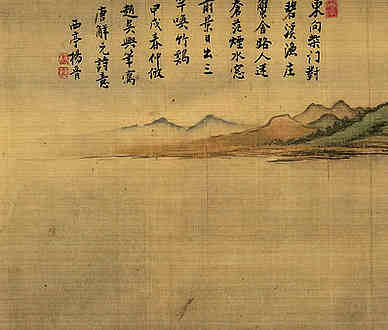 東向柴门對
碧溪漁庄
蟹舍路人迷
蒼茫煙水窓
前景日出三
竿喚竹鷄
甲戌春仲倣
趙吴興筆寫
唐解元詩意
西亭楊晋